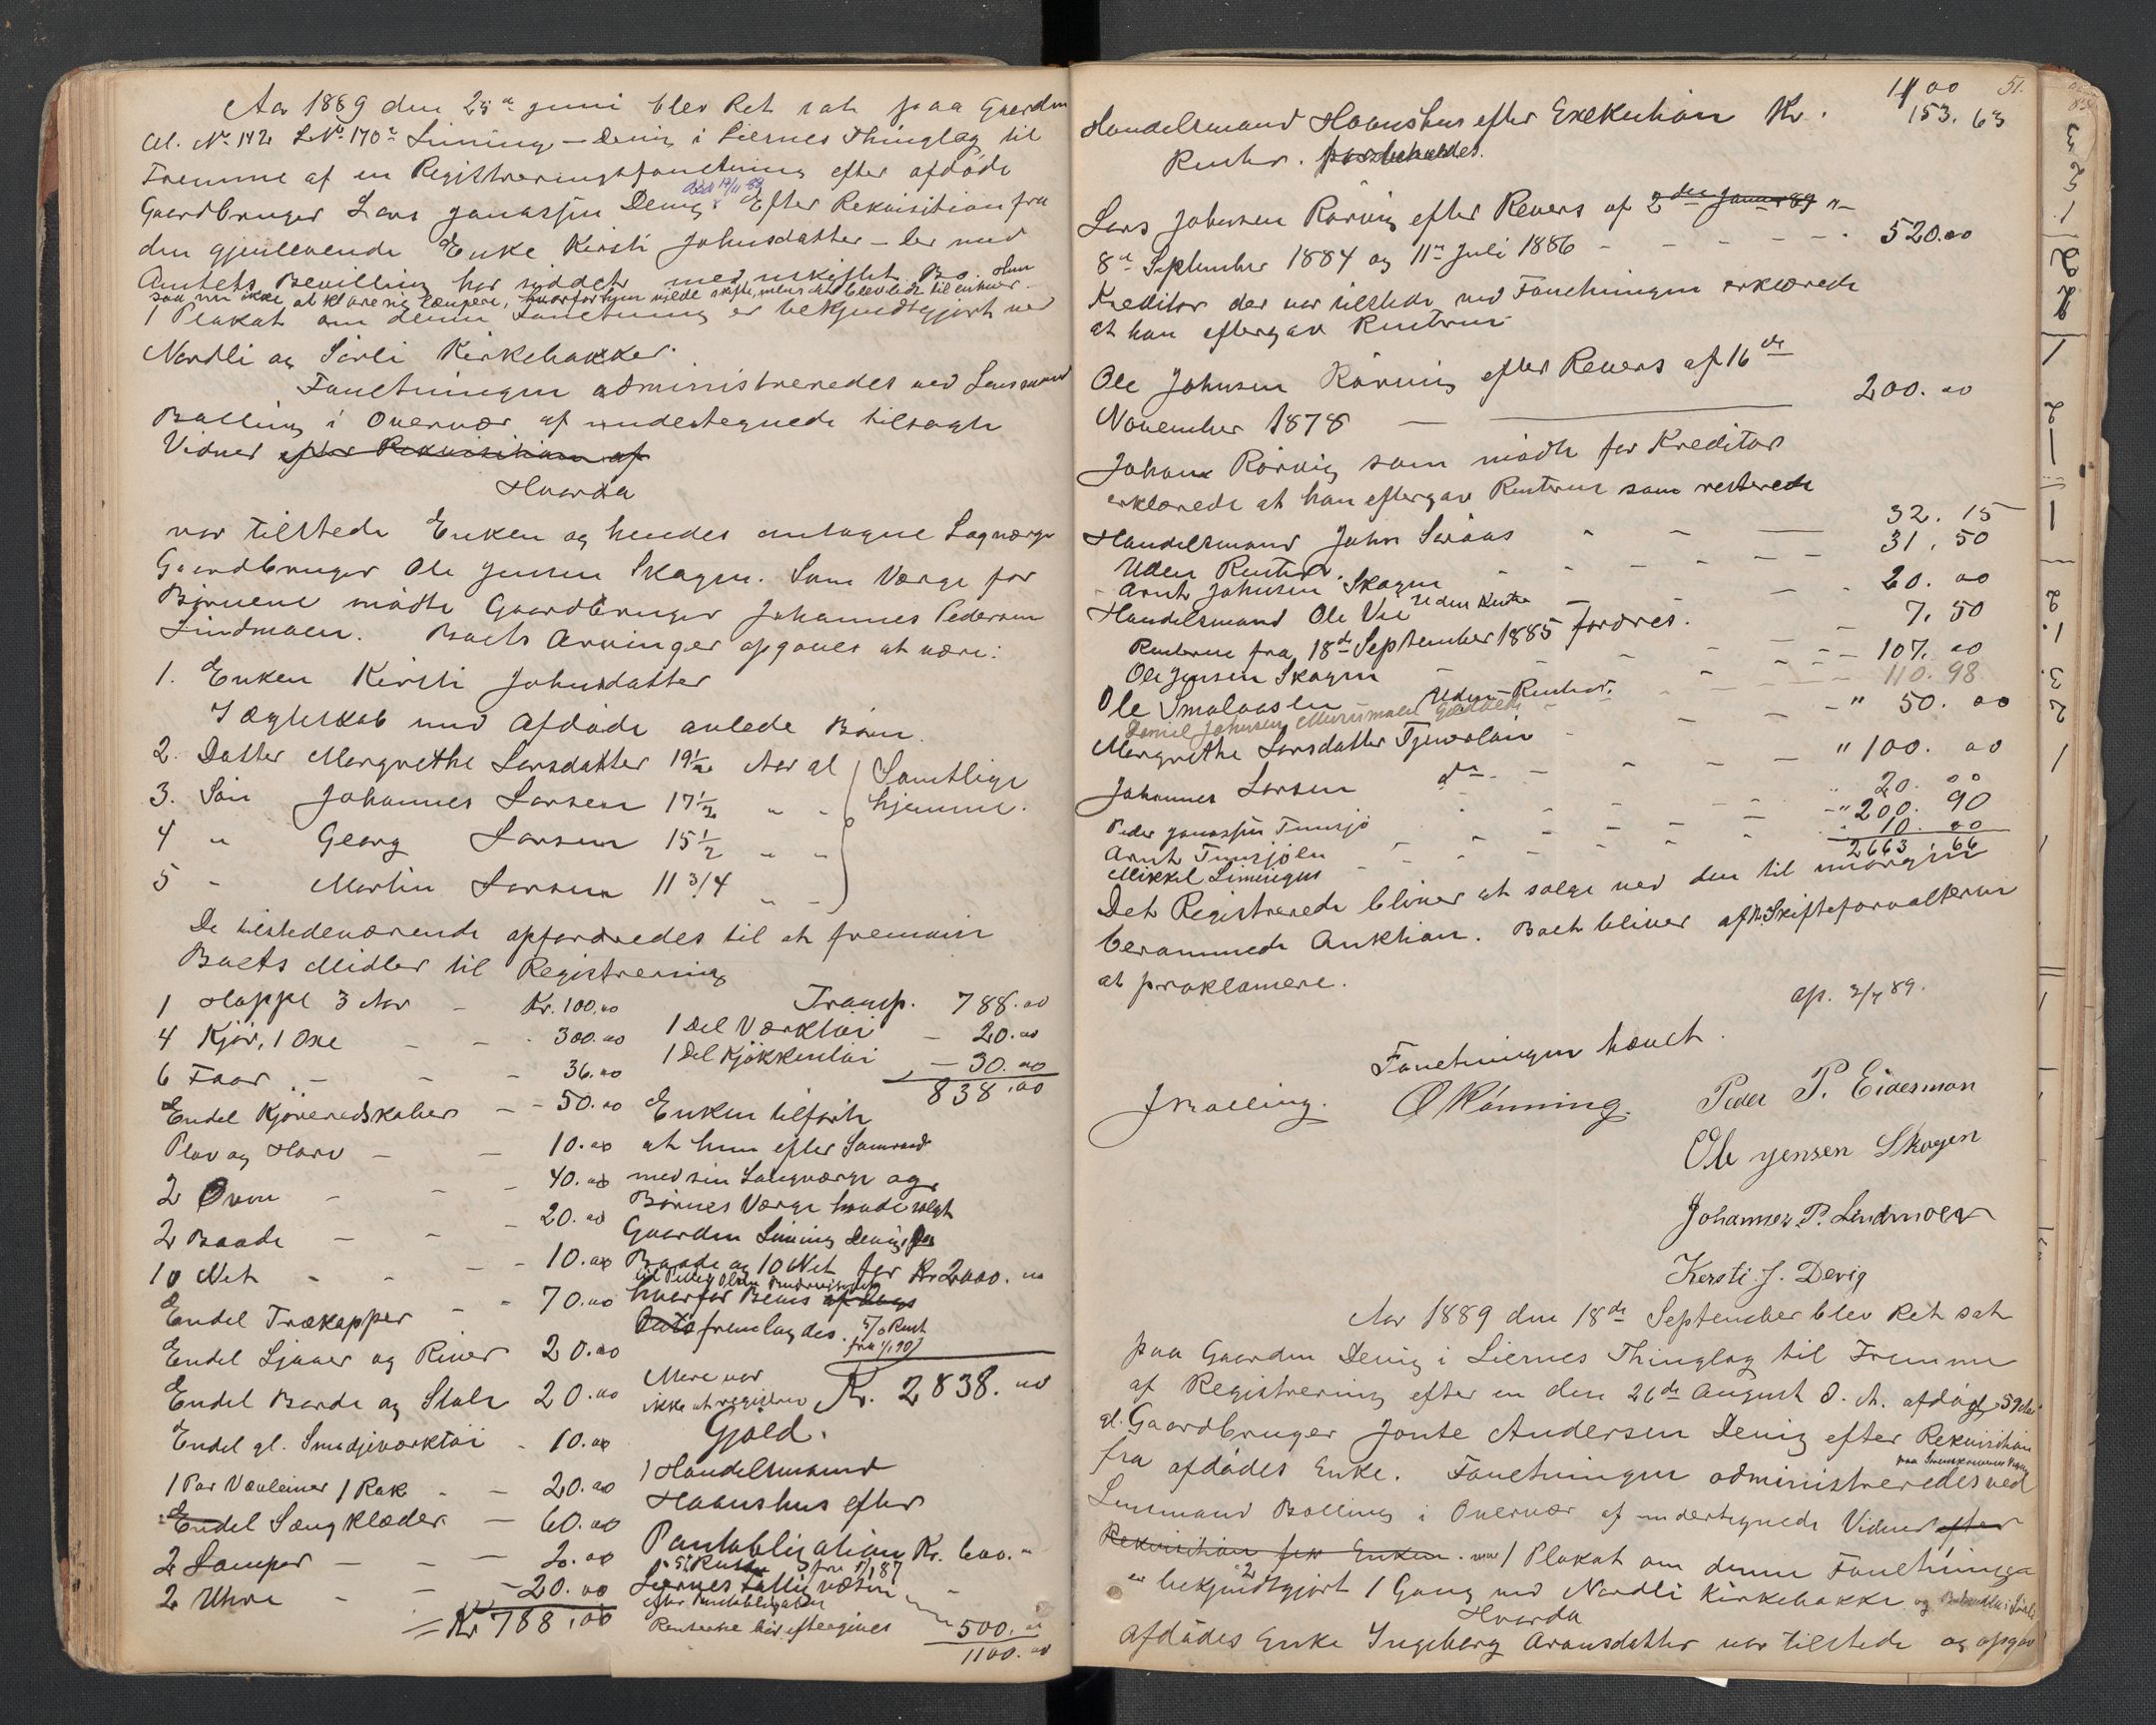 Aar 1889 den 25de juni blev Ret sat paa Gaarden
Gl. No 142 LNo 170a Liming - Devig i Liernes Thinglag til
Fremme af en Registreringsforretning efter afdöde
Gaardbruger Lars Jonassen Devig. Efter Rekvisition fra
den gjenlevende Enke Kirsti Johnsdatter - der med
Amtets Bevilling har siddet med uskiftet Bo. Hun
saa sig ikke at klare sig længere, hvorfor hun vilde skifte,
1 Plakat om denne Forretning er bekjendtgjort ved
Nordli og Sörli Kirkebakker.
Forretningen administreredes ved Lensmand
Bolling i Overvær af undertegnede tilsagte
Vidner efter Rekvisition af
Hvorda
var tilstede Enken og hendes antagne Lagværge
Gaardbruger Ole Jensen Skogen. Som Værge for
Börnene mödte Gaardbruger Johannes Pedersen
Lindmoen. Boets Arvinger opgaves at være:
1. Enken Kirsti Johnsdatter
I Ægteskab med Afdöde avlede Börn.
2. Datter Margrethe Larsdatter 19½ Aar gl
3. Sön Johannes Larsen 17½ " "
4 " Georg Larsen 15½ " "
5 " Martin Larsen 11 3/4 " "
Samtlige
hjemme.
De tilstedeværende opfordredes til at fremvise
Boets Midler til Registrering
1 Hoppe 3 Aar - Kr. 100,00
4 Kjör, 1 Oxe - - 300.00
6 Faar - - - 36.00
Endel Kjöreredskaber - - 50.00
Plov og Harv - - 10.00
2 Ovne - - - 40.00
2 Baade - - - 20.00
10 Net - - - 10.00
Endel Trækopper - - 70.00
Endel Ljaaer og River 20.00
Endel Borde og Stole 20.00
Endel gl. Smedjeværktöi - 10.00
1 Par Vævleiner 1 Rok - - 20.00
Endel Sengklæder - 60.00
2 Lamper - - - 2.00
2 Uhre - - - 20.00
= Kr 788,00
Transp. 788.00
1 Del Værktöi - 20.00
1 Del Kjökkentöi - 30.00
838,00
Enken tilföiede
at hun efter Samraad
med sin Laugværge og
Börnes Værge havde solgt
Gaarden Liming Devig,
Baade og 10 Net for Kr 2000.00
til Peder Olsen
hvorfor Bevis
fremlagdes. 5% Rent
fra 1/1 90)
Mere var
ikke at registrere Kr. 2838.00
Gjæld.
1 Handelsmand
Haanshus efter
Pantobligation Kr. 600.-
5% Rente fra 1/1 87
Liernes
efter Pantobligation
Renterne blir eftergivet 500.00
1100.00
51.
1100
Handelsmand Haanshus efter Exekution Kr. 153.63
Renter. forbeholdes.
Lars Johnsen Rörvig efter Revers af 2den Januar 89
8de September 1884 og 11te Juli 1886 - - - - 520.00
Kreditor der var tilstede ved Forretningen erklærede
at han eftergav Renterne
Ole Johnsen Rörvig efter Revers af 16de
November 1878 - 200.00
Johan Rörvig som mödte for Kreditor
erklærede at han eftergav Renterne som resterede
Handelsmand John - - - 32.15
Uden Renter. - - - - 31,50
Arnt Johnsen Skogen - - - 20.00
Handelsmand Ole Vie Uden Rente 7.50
Renterne fra 18de September 1885 fordres.
Ole Jensen Skogen - - - 107.00
110.98
Ole Smalaasen Uden Renter. - " 50.00
Daniel Johnsen
Margrethe Larsdatter - " 100.00
Johannes Larsen do - - - 20.00
Peder Jonassen Tunsjö - - - " 200.90
Arnt Tunsjöen - - - 10.00
Mikkel Limingen 2663.66
Det Registrerede bliver at sælge ved den til imorgen
berammede Auktion. Boet bliver af Hr. Skifteforvalteren
at proklamere.
op. 2/7 89.
Forretningen hævet.
J Bolling. O Rönning. Peder P. Eidesmon
Ole Jensen Skogen
Johannes. P. Lindmoen
Kersti. J. Devig
Aar 1889 den 18de September blev Ret sat
paa Gaarden Devig i Liernes Thinglag til Fremme
af Registrering efter en den 26de August d. A. afdöd 59 Aar
gl. Gaardbruger Jonte Andersen Devig efter Rekvisition
fra afdödes Enke. Forretningen administreredes ved
Lensmand Bolling i Overvær af undertegnede Vidner efter
Rekvisition fra Enken. 1 Plakat om denne Forretning
er bekjendtgjort 1 Gang ved Nordli Kirkebakke og
Hvorda
afdödes Enke Ingeborg Aronsdatter var tilstede og opgav